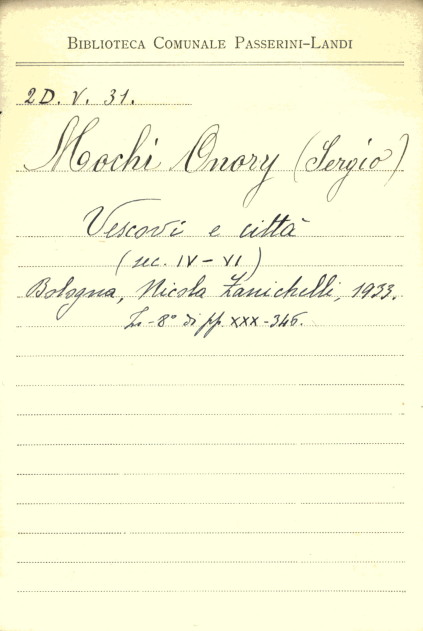 BIBLIOTECA COMUNALE PASSERINI-LANDI
2D. V. 31.
Mochi Onory (Sergio)
Vescovi e città
(sec. IV - VI)
Bologna, Nicola Zanichelli, 1933.
In-8° di pp XXX-346.